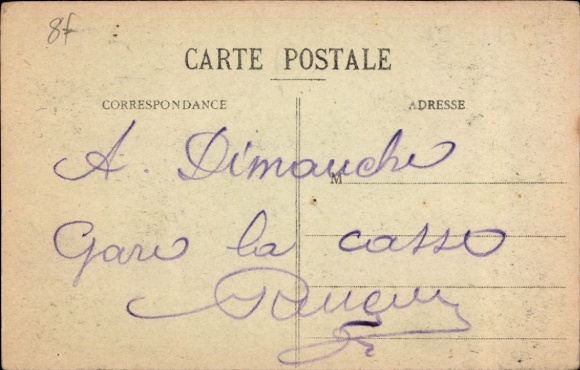 8f
CARTE POSTALE
CORRESPONDANCE
ADRESSE
A. Dimanche
M
Gare la casse